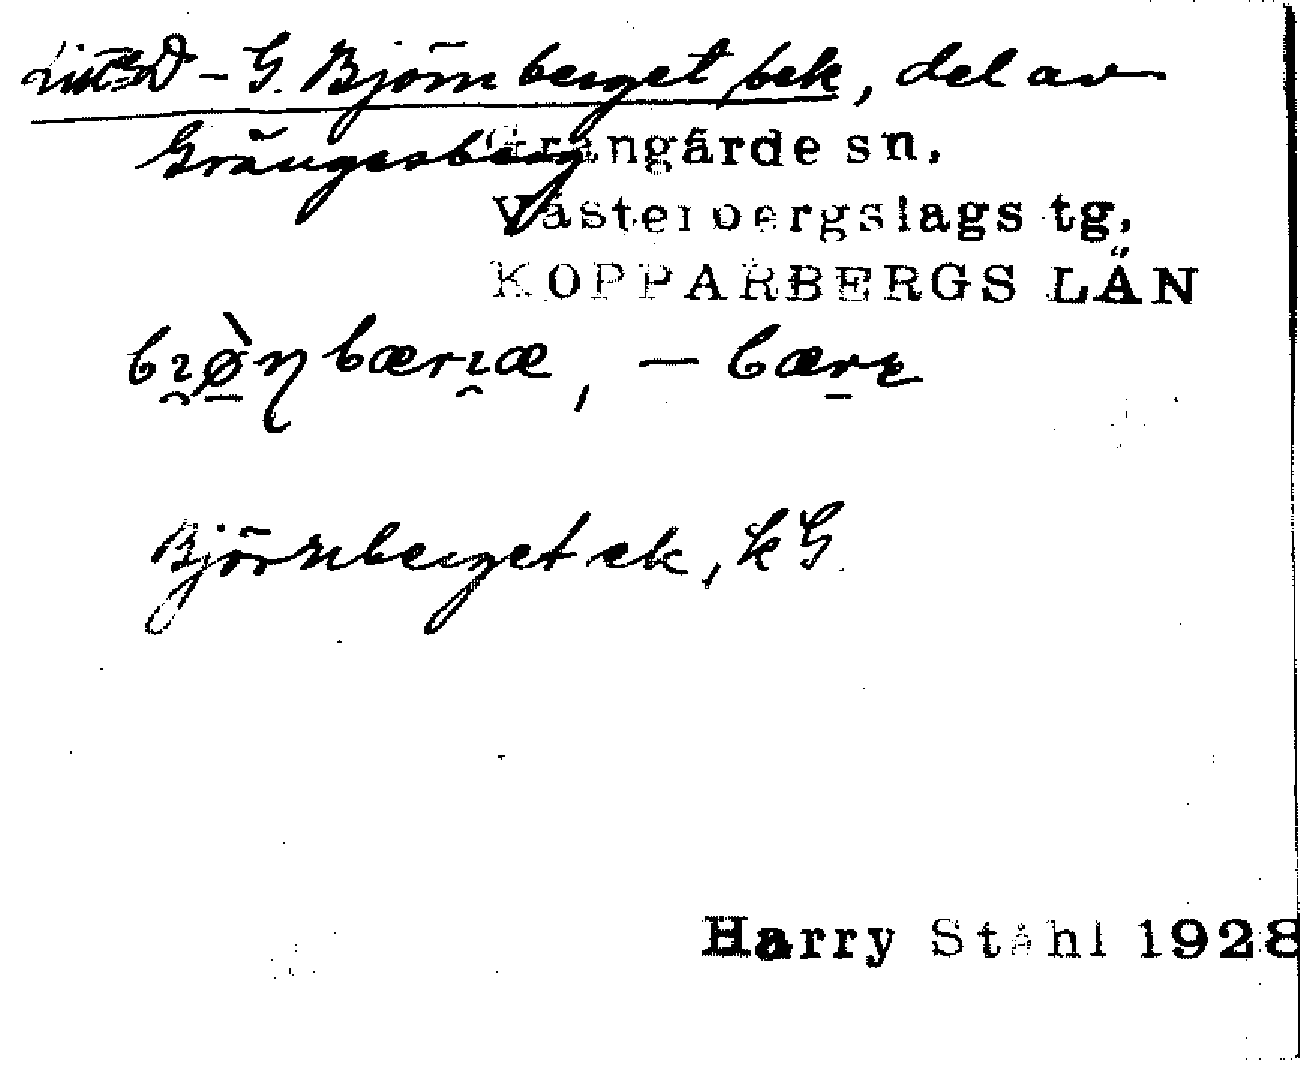 - G. Björnberget bek, del av
Grängesberg
Grangärde sn.
Västerbergslags tg.
KOPPARBERGS LÄN
Björnberget ek, k G
Harry Ståhl 1928